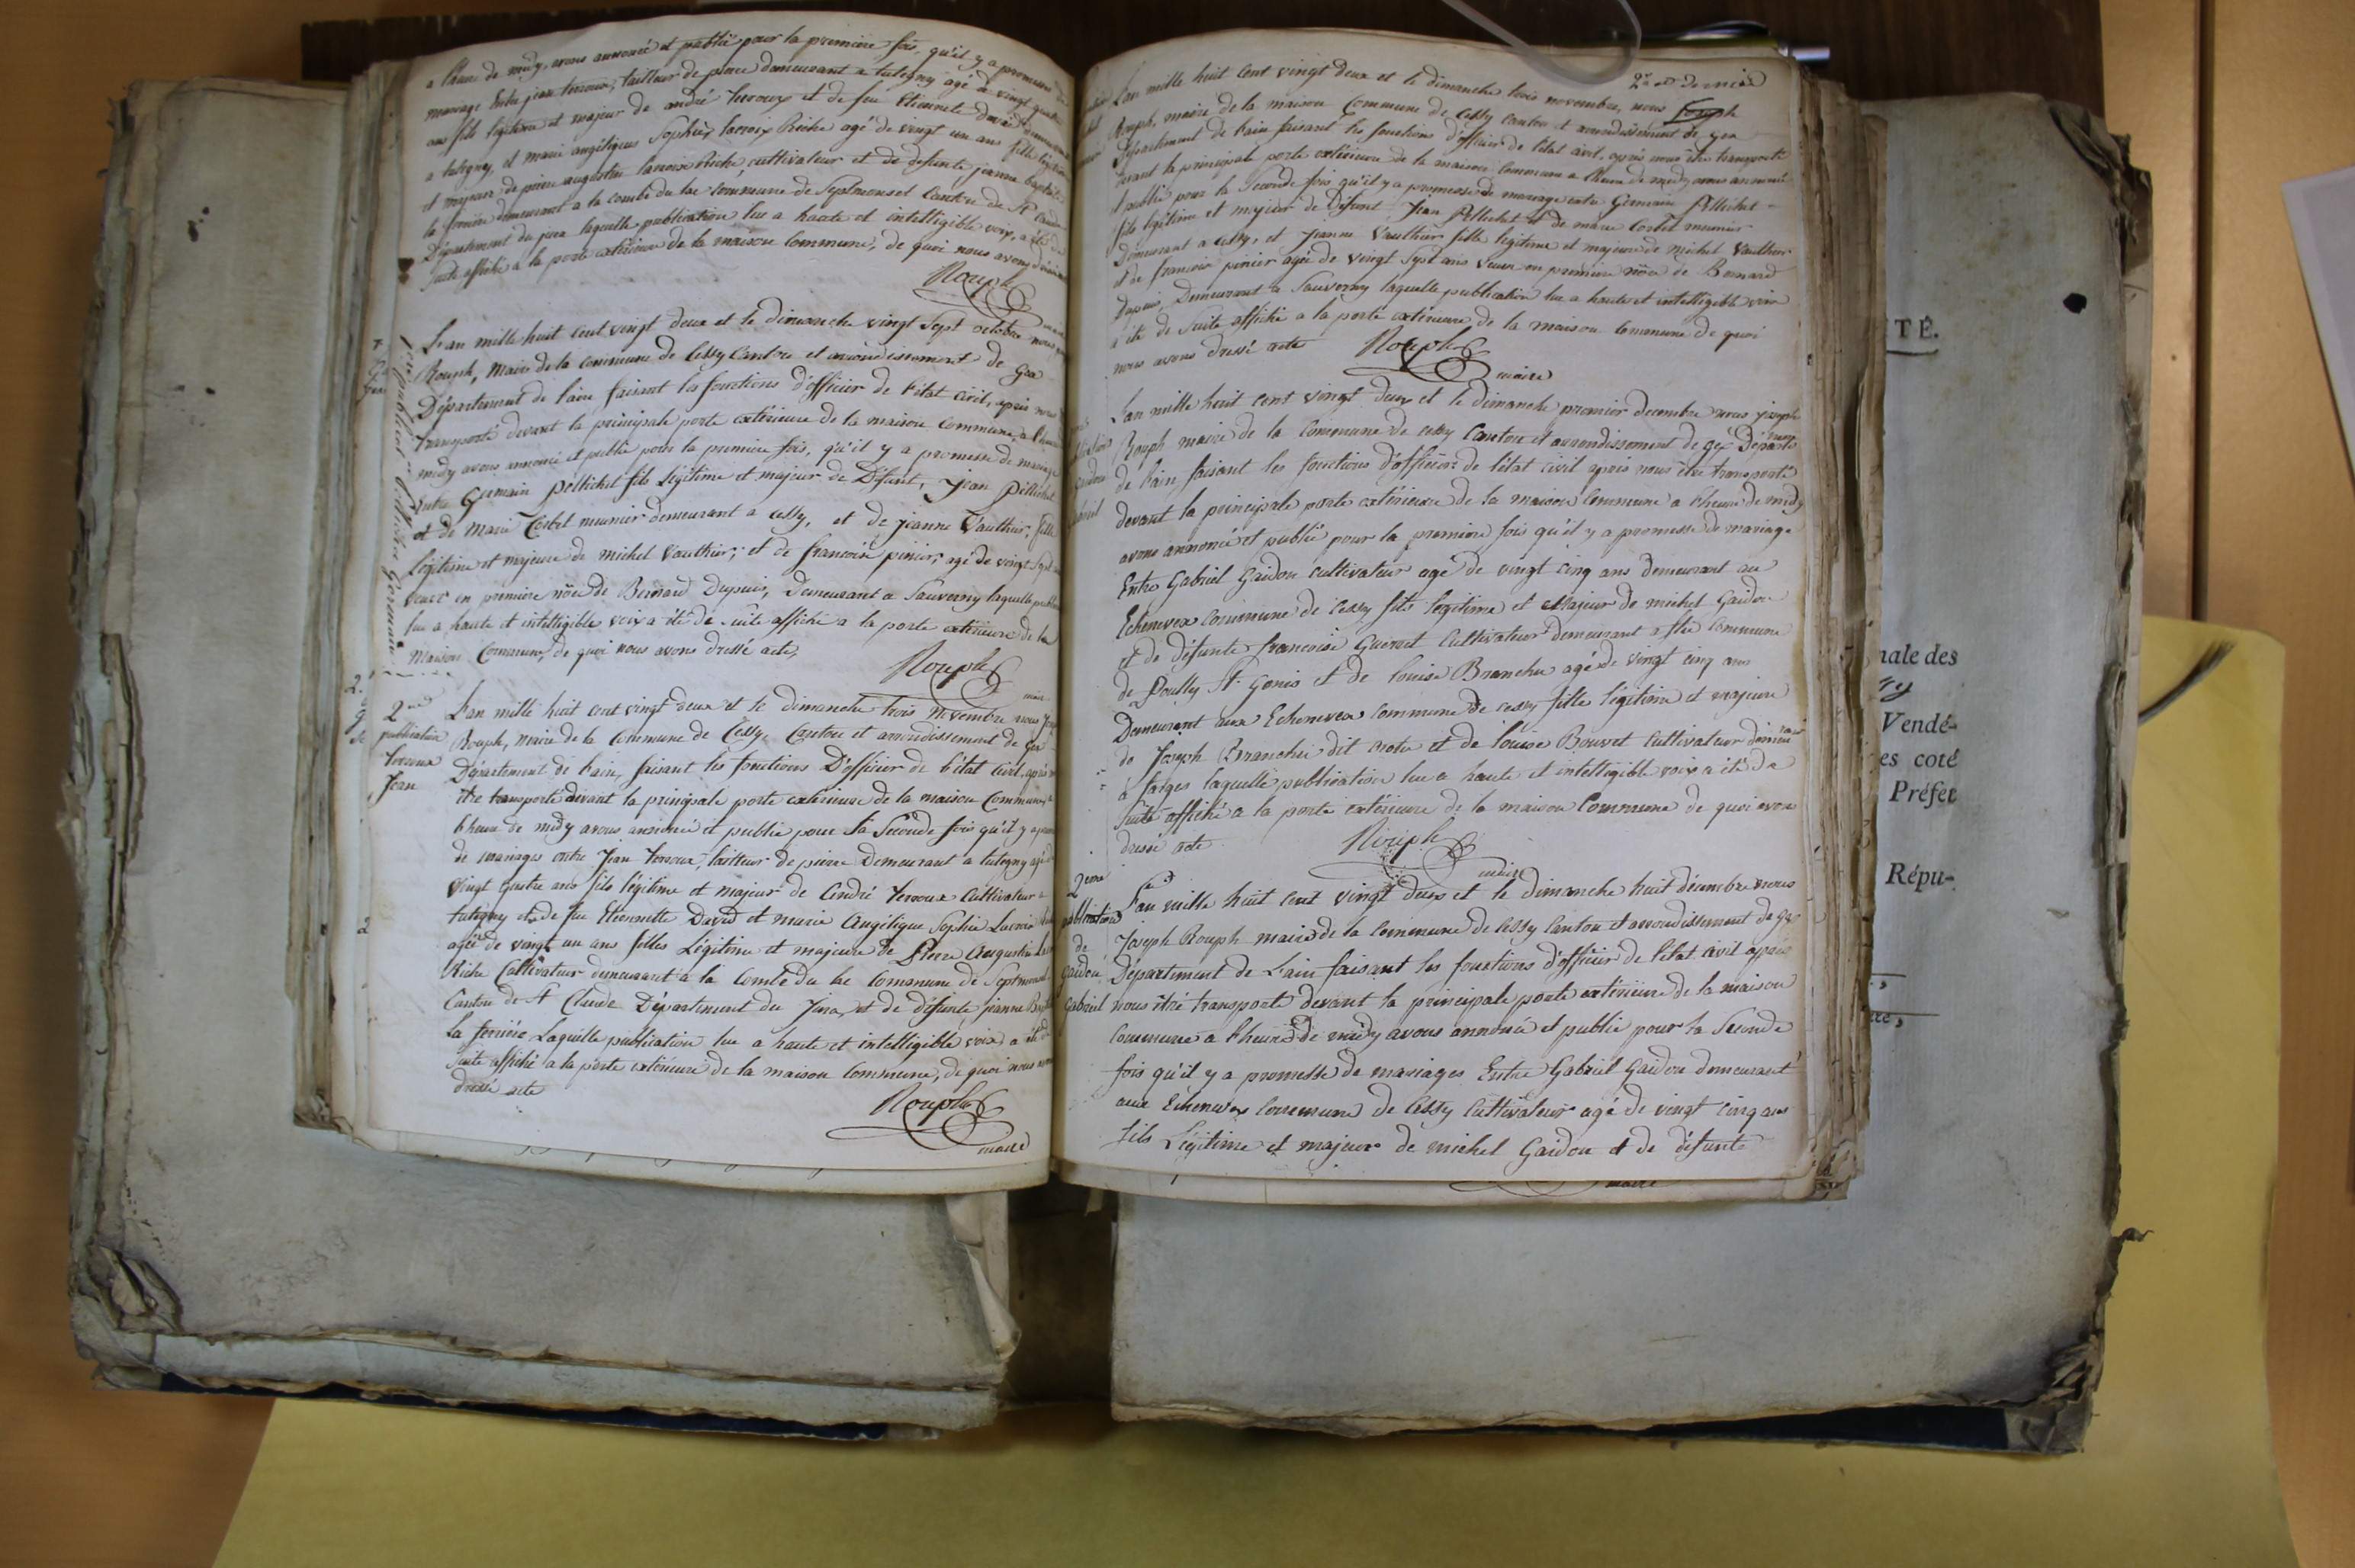 a l'heure de midy, avons annoncé et publié pour la première fois, qu'il y a promesse de
mariage Entre jean terroux, tailleur de pierre demeurant a tutegny agé de vingt quatre
ans fils légitime et majeur de andré terroux et de feu Etiennete david demeurant
a tutegny, et marie angélique Sophie lacroix Riche agé de vingt un ans fille légitime
et majeure de pierre augustin lacroix Riche, cultivateur et de defunte jeanne baptiste
la ferrière demeurant a la combe du lac commune de Septmoncel Canton de St Claude
Département du jura laquelle publication lue a haute et intelligible voix, a été de
suite affiché a la porte extérieure de la maison Commune, de quoi nous avons dressé
Rouph
L'an mille huit cent vingt deux et le dimanche vingt Sept octobre nous
Rouph, Maire de la commune de Cessy Canton et arrondissement de Gex
Département de l'ain faisant les fonctions d'officier de l'état civil, après nous
transporté devant la principale porte extérieure de la maison Commune, a l'heure
midy avons annoncé et publié pour la première fois, qu'il y a promesse de mariage
Entre Germain pellichet fils Légitime et majeur de Défunt, Jean pellichet
et de Marie Corbet meunier demeurant a Cessy, et de jeanne Vauthier, fille
légitime et majeure de michel Vauthier, et de francoise pinier, agé de vingt Sept
veuve en première nôce de Bernard Dupuis, Demeurant a Sauverny laquelle
lue a haute et intelligible voix a été de suite affiché a la porte extérieure de la
Maison Commune, de quoi nous avons dressé acte,
Rouph
maire
2me
publication
terroux
Jean
L'an mille huit cent vingt deux et le dimanche trois Novembre nous
Rouph, maire de la Commune de Cessy Canton et arrondissement de Gex
Département de l'ain, faisant les fonctions D'officier de l'état Civil, après
être transporté devant la principale porte extérieure de la maison Commune a
l'heure de midy avons annoncé et publié pour la Seconde fois qu'il y a
de mariages entre Jean terroux, tailleur de pierre Demeurant a tutegny agé
vingt quatre ans fils légitime et majeur de André terroux Cultivateur a
tutegny et de feu Etiennette David et marie Angélique Sophie Lacroix
agée de vingt un ans filles Légitime et majeure de Pierre Augustin
Riche Cultivateur demeurant a la Combe du lac Commune de Septmoncel
Canton de St Claude Département du Jura, et de défunte jeanne
La ferrière Laquelle publication lue a haute et intelligible voix a été
suite affiché a la porte extérieure de la maison Commune, de quoi nous
dressé acte
Rouph
maire
2e et Dernière
L'an mille huit cent vingt deux et le dimanche trois novembre, nous Joseph
Rouph, maire de la maison Commune de Cessy Canton et arrondissement de Gex
Département de l'ain faisant les fonctions d'officier de l'état civil, après nous être transporté
devant la principale porte extérieure de la maison Commune a l'heure de midy avons annoncé
et publié pour la Seconde fois qu'il y a promesse de mariage entre Germain Pellichet
fils légitime et majeur de Défunt, Jean Pellichet et de marie Corbet meunier
Demeurant a Cessy, et Jeanne Vauthier fille légitime et majeure de Michel Vauthier
et de francoise pinier agée de vingt Sept ans veuve en première nôce de Bernard
Dupuis, Demeurant a Sauverny laquelle publication lue a haute et intelligible voix
a été de suite affiché a la porte extérieure de la maison Commune de quoi
nous avons dressé acte
Rouph
maire
L'an mille huit cent vingt deux et le dimanche premier decembre nous joseph
Rouph maire de la Commune de cessy Canton et arrondissement de gex Département
de l'ain faisant les fonctions d'officier de l'état civil apres nous être transporté
devant la principale porte extérieure de la maison Commune a l'heure de midy
avons annoncé et publié pour la première fois qu'il y a promesse de mariage
Entre Gabriel Gaidon cultivateur agé de vingt cinq ans demeurant au
Echenevex commune de Cessy fils légitime et Majeur de michel Gaidon
et de défunte francoise Cultivateur demeurant a flie Commune
de Poully St Genis et de louise Branchu agé de vingt cinq ans
Demeurant aux Echenevex commune de cessy fille légitime et majeure
de Joseph Branchu dit et de louise Bouvet cultivateur demeurant
a farges laquelle publication lue a haute et intelligible voix a été de
suite affiché a la porte extérieure de la maison Commune de quoi avons
dressé acte
Rouph
maire
2eme
publication
de
Gaidon
Gabriel
L'an mille huit cent vingt deux et le dimanche huit décembre nous
Joseph Rouph maire de la Commune de Cessy Canton et arrondissement de gex
Département de L'ain faisant les fonctions d'officier de l'état civil après
nous être transporté devant la principale porte extérieure de la maison
Commune a l'heure de midy avons annoncé et publié pour la Seconde
fois qu'il y a promesse de mariages Entre Gabriel Gaidon demeurant
aux Echenevex Commune de Cessy Cultivateur agé de vingt cinq ans
fils Légitime et majeur de michel Gaidon et de défunte
maire
TÉ.
nale des
Vendé-
es coté
Préfet
Répu-